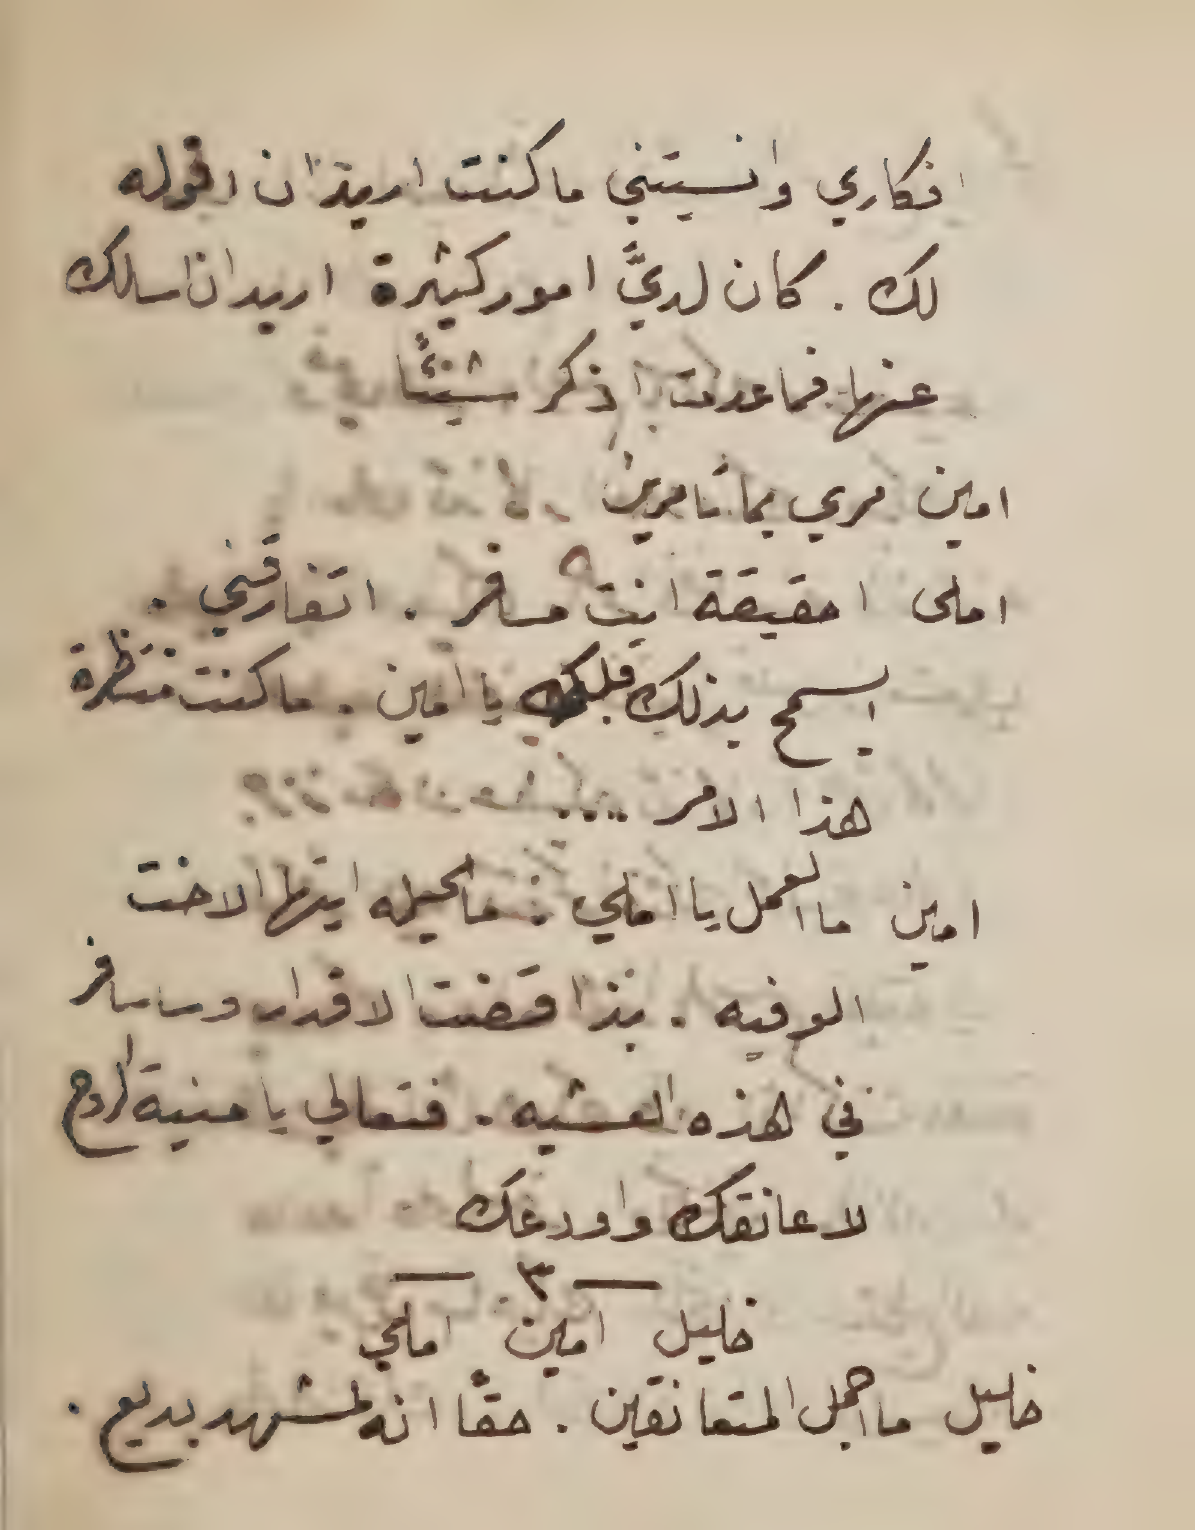 افكاري وانسيتني ما كنت اريد ان اقوله
لك . كان لديَّ امور كثيرة اريد ان اسالك
عنها فما عدت اذكر شيئًا
امين مري بما تامرين
املي احقيقة انت مسافر . اتفارقني .
ايسمح بذلك قلبك يا امين . ما كنت منتظرة
هذا الامر ....
امين ما العمل يا املي فما الحيله ايتها الاخت
الوفيه . بذا قضت الاقدار وساسافر
في هذه العشيه . فتعالي يا منية الروح
لاعانقك واودعك
— ٣ —
خليل امين املي
خليل ما اجمل المتعانقين . حقًا انه لمشهد بديع .